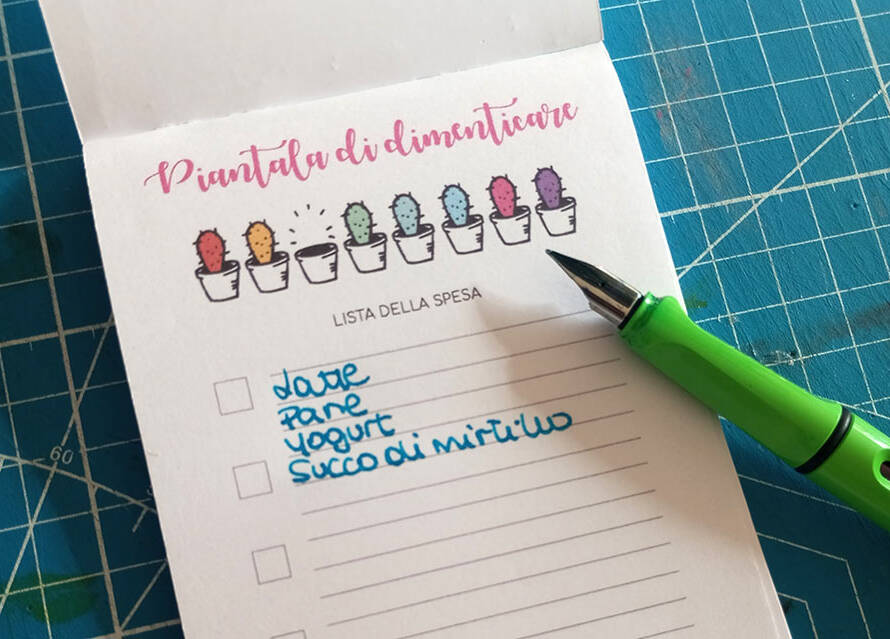 Piantala di dimenticare
LISTA DELLA SPESA
Latte
Pane
Yogurt
Succo di mirtillo
60